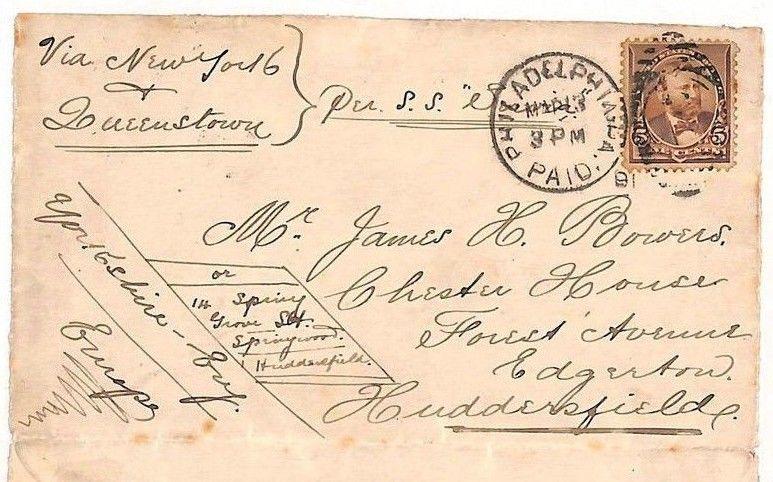 Via New York
&
Queenstown
Per S.S.
PHILADELPHIA
MAR 13
3 PM
PAID.
5 5
Mr. James H. Bowers.
Chester House
Forest Avenue
Edgerton.
Huddersfield.
or
14 Spring
Grove St.
Springwood.
Huddersfield.
Yorkshire - Eng.
Europe